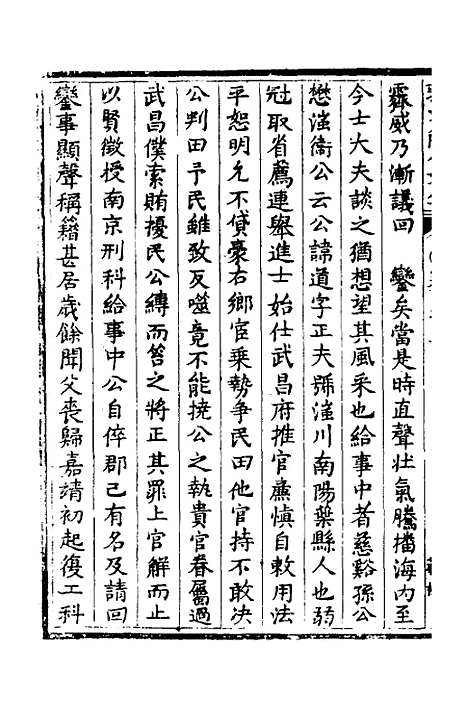 霽威乃漸議回　鑾矣當是時直聲壯氣騰播海内至
今士大夫談之猶想望其風采也給事中者慈谿孫公
懋滍衛公云公諱道字正夫號滍川南陽葉縣人也弱
冠取省薦連舉進士始仕武昌府推官廉慎自敕用法
平恕明允不貸豪右鄉宦乗勢争民田他官持不敢决
公判田予民雖致反噬竟不能撓公之執貴官眷屬過
武昌僕索賄擾民公縛而笞之將正其罪上官解而止
以賢徵授南京刑科給事中公自倅郡已有名及請回
鑾事顯聲稱籍甚居歲餘聞父喪歸嘉靖初起復工科